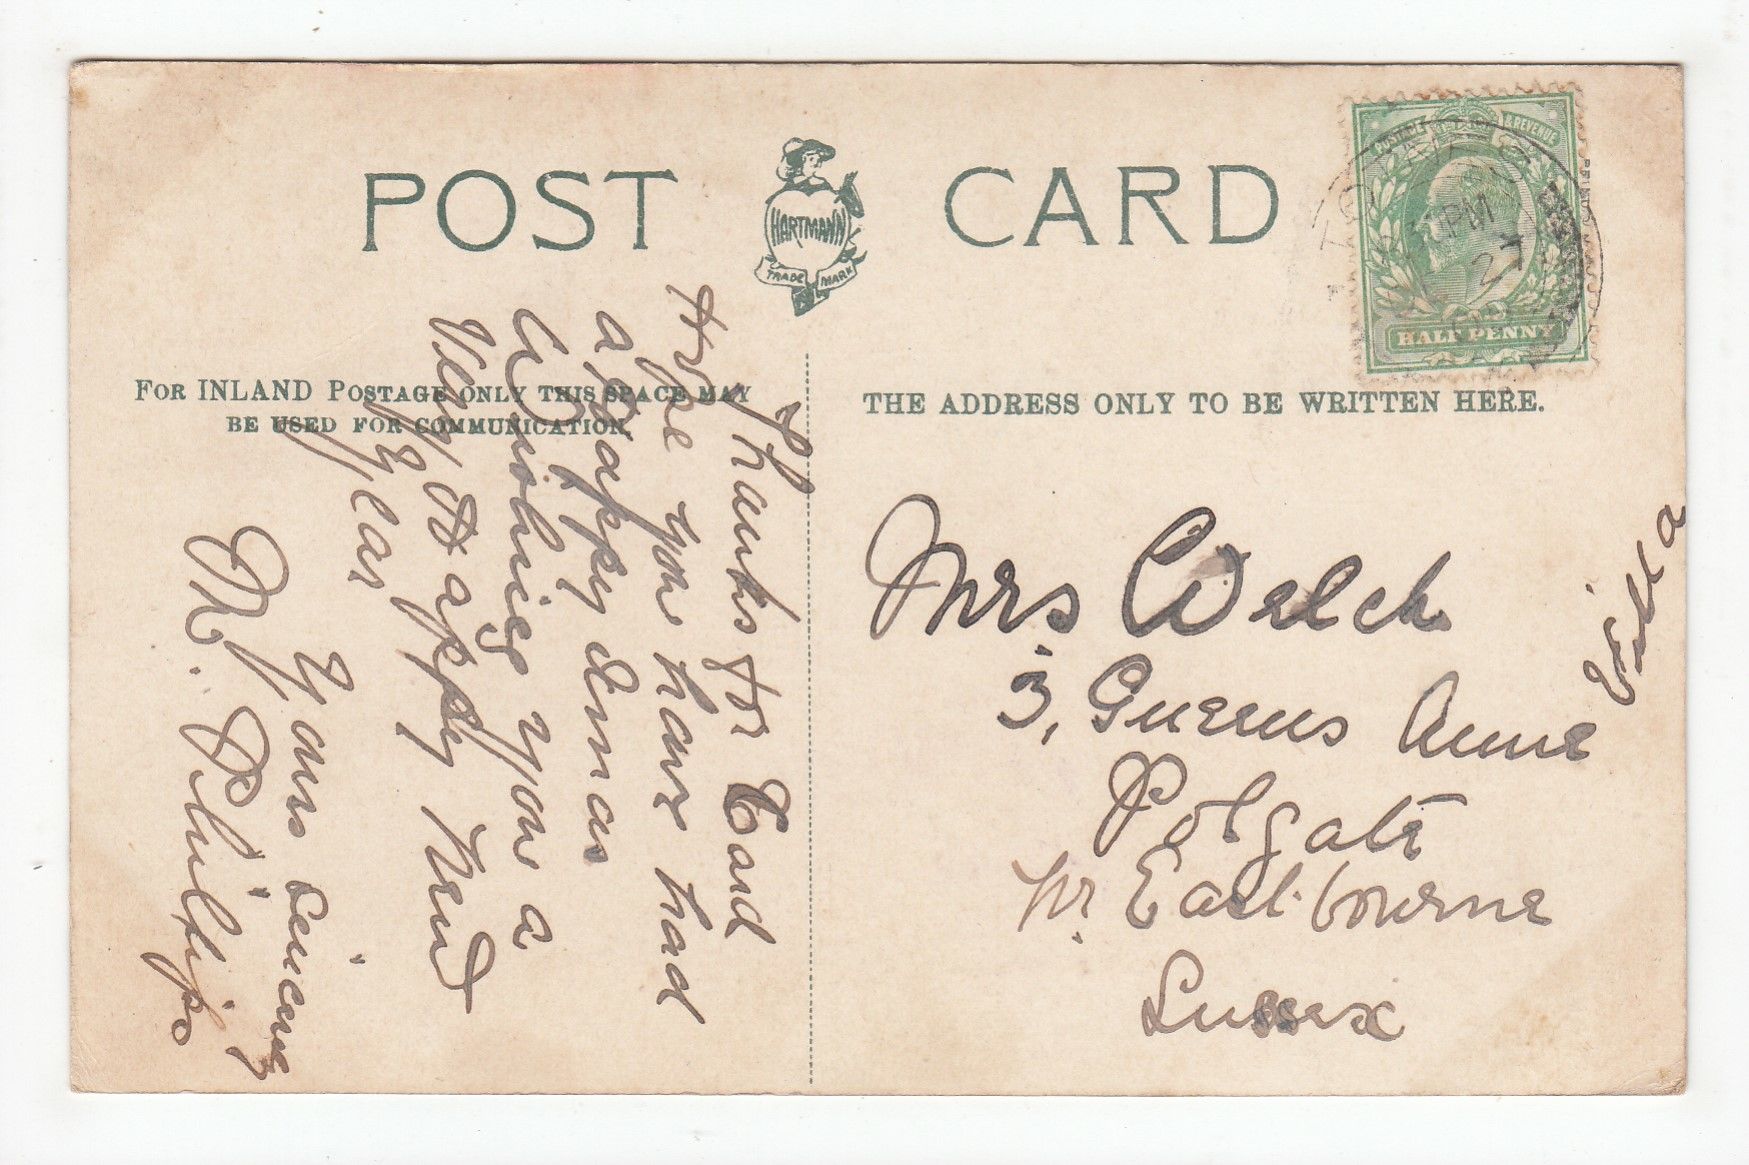 POST CARD
HARTMANN
TRADE MARK
POSTAGE & REVENUE
PM
27
HALF PENNY
FOR INLAND POSTAGE ONLY THIS SPACE MAY
BE USED FOR COMMUNICATION.
THE ADDRESS ONLY TO BE WRITTEN HERE.
Thanks for Card
Hope you have had
a Happy Xmas
Wishing you a
Very Happy New
Year
Yours sincerely
M. Phillips
Mrs Welch
3, Queens Anne Villa
Polgate
Nr. Eastbourne
Sussex